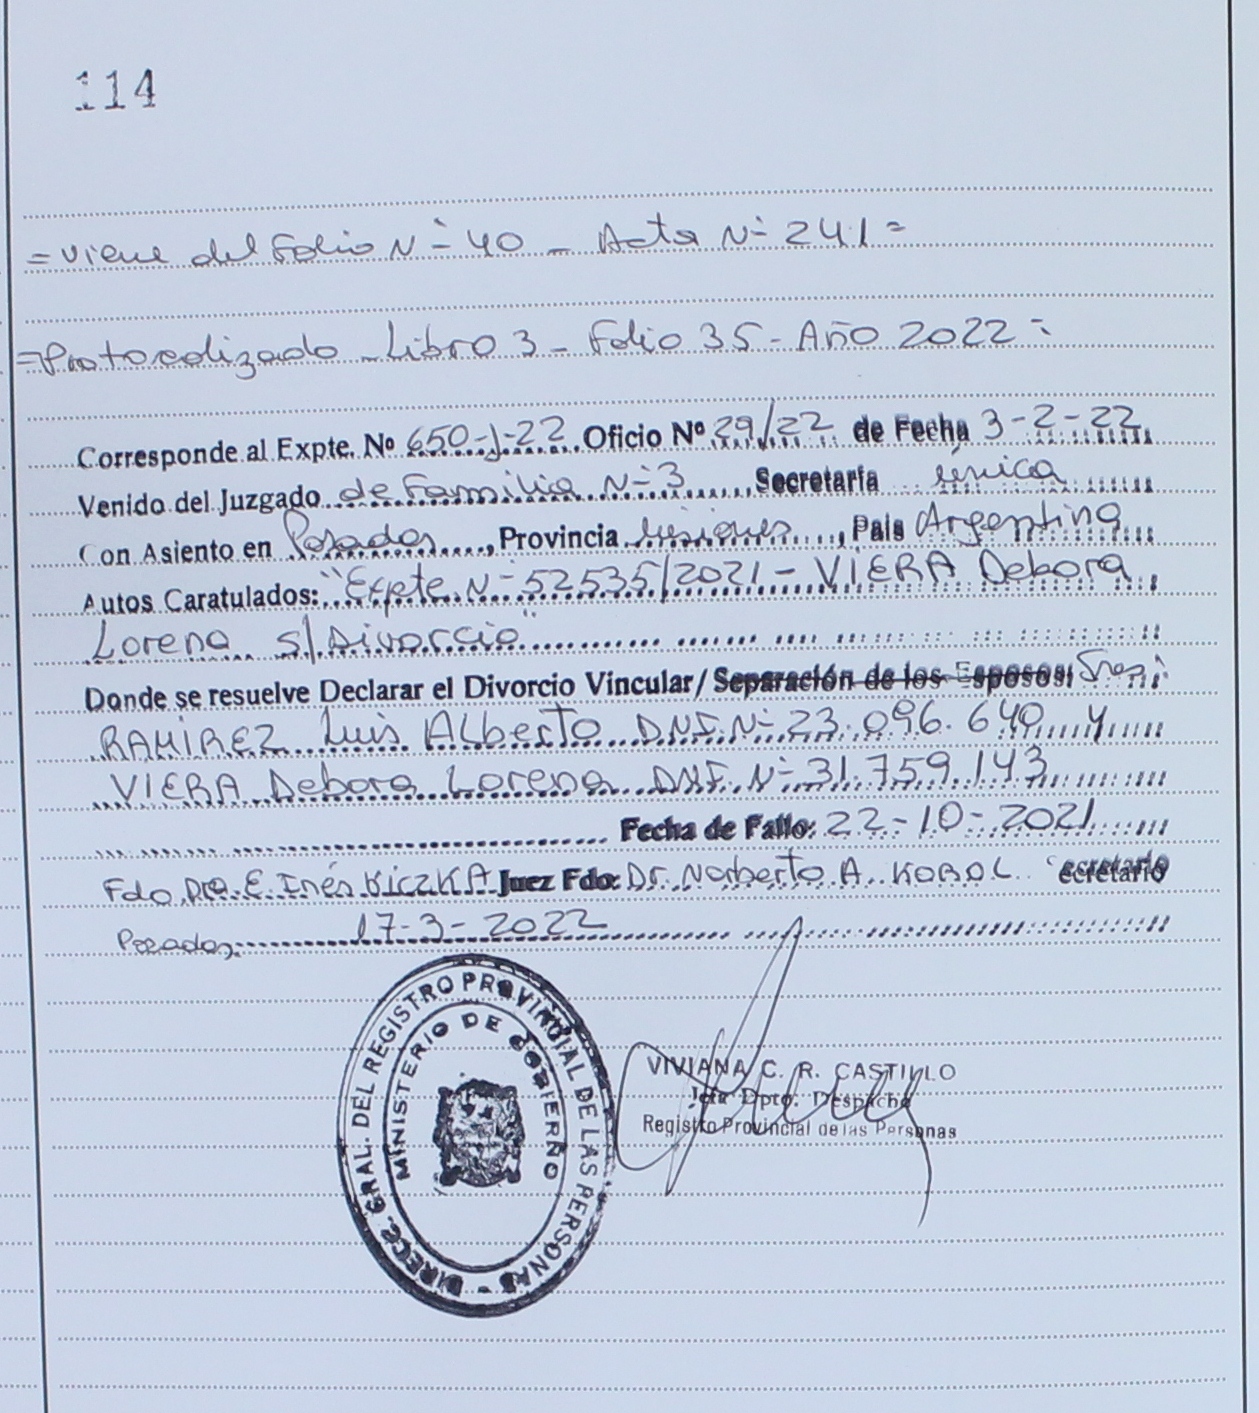 114
= Viene del Folio Nº 40 - Acta Nº 241 =
= Protocolizado - Libro 3 - Folio 35 - Año 2022 =
Corresponde al Expte. Nº 650-J-22 Oficio Nº 29/22 de Fecha 3-2-22
Venido del Juzgado de Familia Nº 3 Secretaría única
Con Asiento en Posadas, Provincia Misiones, País Argentina
Autos Caratulados: "Expte Nº 52535/2021 - VIERA Debora
Lorena s/Divorcio"
Donde se resuelve Declarar el Divorcio Vincular/Separación de los Esposos:
RAMIREZ Luis Alberto DNI. Nº 23.096.640 y
VIERA Debora Lorena DNI. Nº 31.759.143
Fecha de Fallo: 22-10-2021
Fdo Dra. E. Inés KICZKA Juez Fdo: Dr. Norberto A. KOROL ecretario
Posadas, 17-3-2022
DIRECC. GRAL. DEL REGISTRO PROVINCIAL DE LAS PERSONAS -
MINISTERIO DE GOBIERNO
VIVIANA C. R. CASTILLO
Jefa Dpto. Despacho
Registro Provincial de las Personas